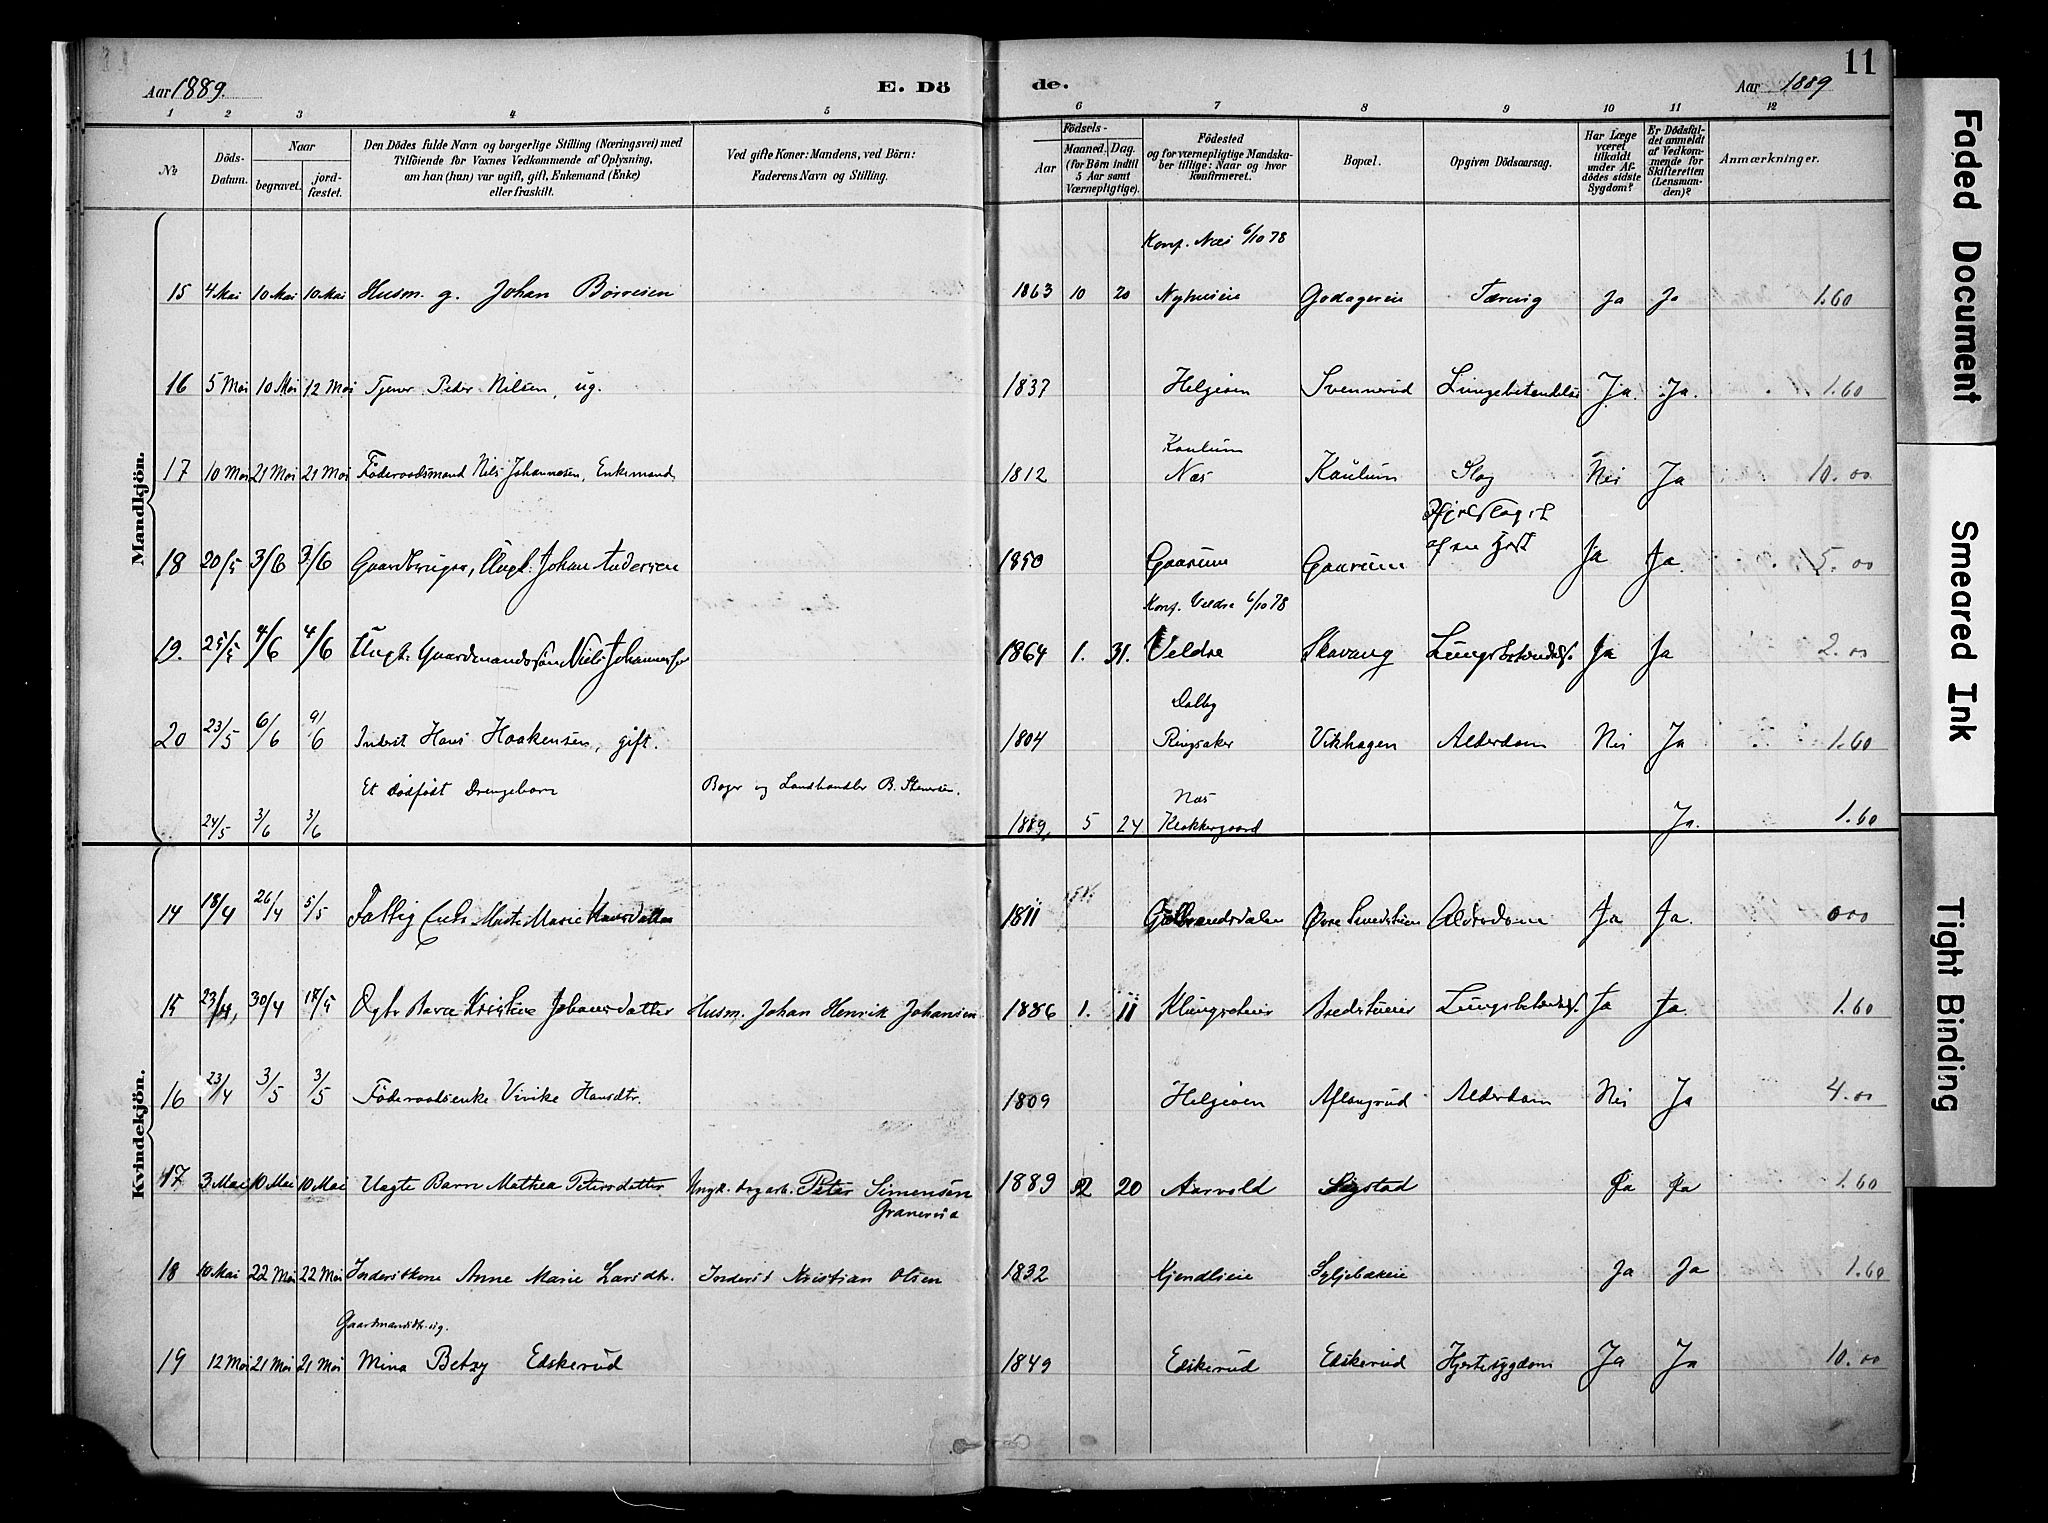 11
Aar 1889.
E. Dö
de.
Aar 1889
1 2 3 4 5 6 7 8 9 10 11 12
No
Döds-Datum.
Naar
begravet.
jord-fæstet.
Den Dödes fulde Navn og borgerlige Stilling (Næringsvei) med
Tilföiende for Voxnes Vedkommende af Oplysning,
om han (hun) var ugift, gift, Enkemand (Enke)
eller fraskilt.
Ved gifte Koner: Mandens, ved Börn:
Faderens Navn og Stilling.
Födsels-
Aar
Maaned. Dag.
(for Börn indtil
5 Aar samt
Værnepligtige).
Födested
og for værnepligtige Mandska-
ber tillige: Naar og hvor
konfirmeret.
Bopæl.
Opgiven Dödsaarsag.
Har Læge
været
tilkaldt
under Af-
dödes sidste
Sygdom?
Er Dödsfal-
det anmeldt
af Vedkom-
mende for
Skifteretten
(Lensman-
den)?
Anmærkninger.
Mandkjön.
Konf. Næs 6/10 78
15 4 Mai 10 Mai 10 Mai Husm. g. Johan Börresen 1863 10 20 Nyhuseie Godagereie Tæring Ja Ja 1.60
16 5 Mai 10 Mai 12 Mai Tjener Peder Nilsen, ug. 1837 Helgeöen Svennerud Lungebetændelse Ja. Ja. 1.60
Kaulum
17 10 Mai 21 Mai 21 Mai Föderaadsmand Nils Johannesen, Enkemand 1812 Næs Kaulum Slag Nei Ja 10.00
ihjelslaget
af en Hest
18 20/5 3/6 3/6 Gaardbruger, Ungk. Johan Andersen 1850 Gaarum Gaarum Ja Ja. 5.00
Konf. Veldre 6/10 78
19. 25/5 4/6 4/6 Ungk. Gaardmandssön Niels Johannessen 1864 1. 31. Veldre Skavang Lungebetændelse. Ja Ja 2.00
Dalby
20 23/5 6/6 9/6 Inderst Hans Haakensen, gift. 1804 Ringsaker Vikhagen Alderdom Nei Ja 1.60
Et dödfödt Drengebarn Bager og Landhandler B. Stenersen.
Næs
24/5 3/6 3/6 1889, 5 24 Klokkergaard Ja. 1.60
Kvindekjön.
14 18/4 26/4 5/5 Fattig Enke Marte Marie Hansdatter 1811 Gulbrandsdalen Övre Smedstuen Alderdom Ja Ja. 000
15 23/4, 30/4 17/5 Ogte Barn Kristine Johansdatter Husm. Johan Henrik Johansen 1886 1. 11 Klungsteie Bredstueeie Lungebetændelse. Ja Ja. 1.60
16 23/4 3/5 3/5 Föderaadsenke Vivike Hansdtr. 1809 Helgeöen Aflangrud Alderdom Nei Ja 4.00
17 3 Mai 10 Mai 10 Mai Uægte Barn Mathea Petersdatter Ungk. dagarb. Peter Simensen 1889 2 20 Aarvold Sigstad Ja Ja 1.60
Granereie
18 10 Mai 22 Mai 22 Mai Inderstkone Anne Marie Larsdtr. Inderst Kristian Olsen 1832 Kjendlieie Syljebækeie Ja Ja 1.60
Gaardmandsdtr. ug.
19 12 Mai 21 Mai 21 Mai Mina Betzy Edskerud 1849 Edskerud Edskerud Hjertesygdom Ja Ja 10.00
Faded Document
Smeared Ink
Tight Binding